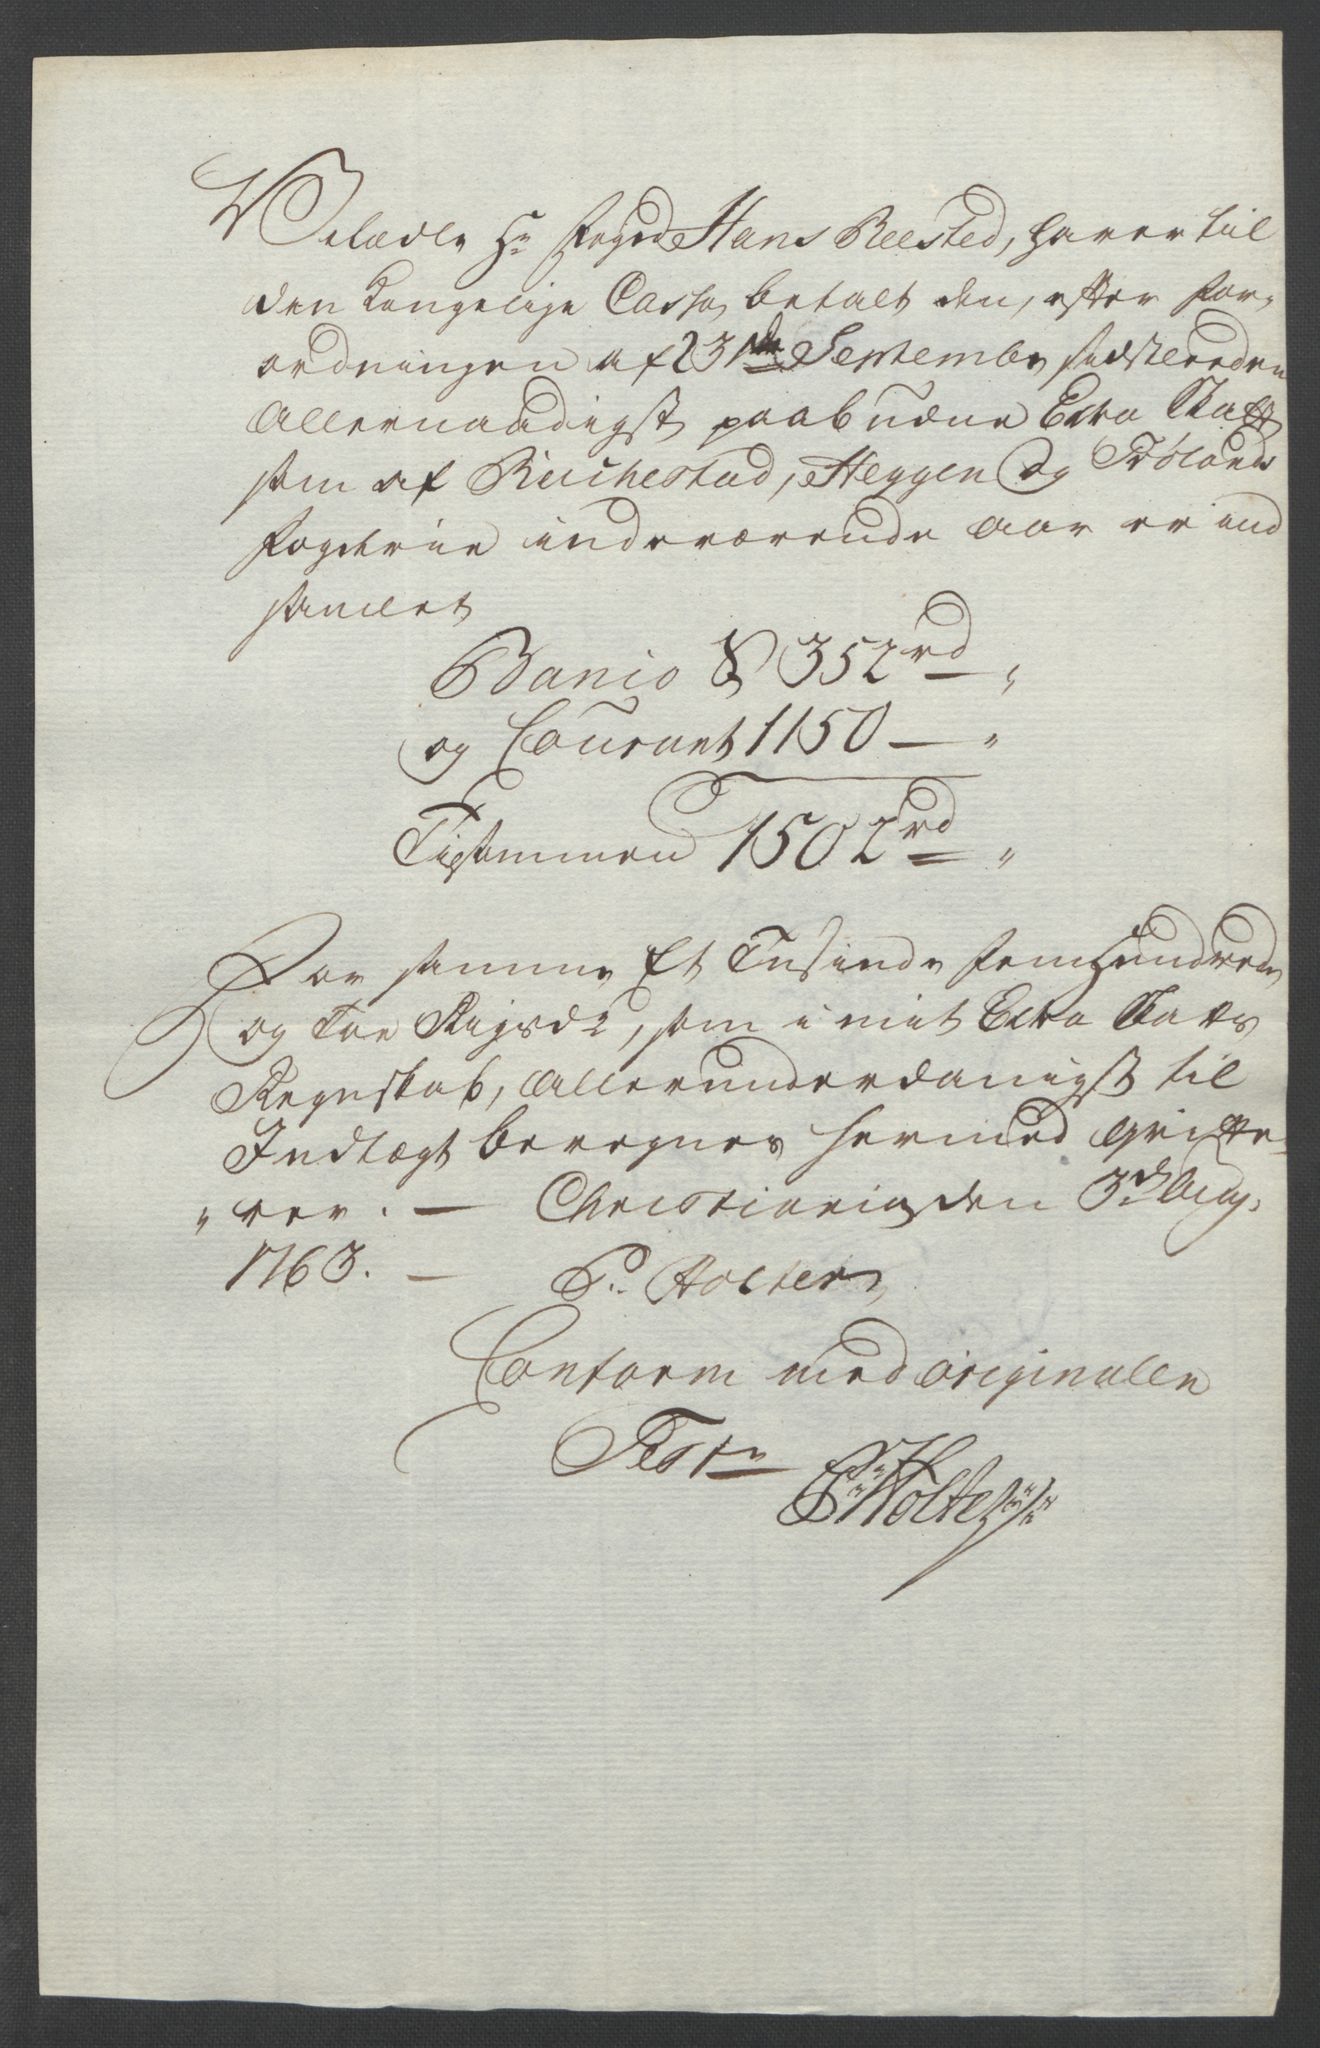 Velædle Hr Foged Hans Reested, haver til
den Kongelige Cassa betalt den, efter For-
ordningen af 23de Septembr sidstleeden
Allernaadigst paabudne Extra Skatt
som af Buchestad, Heggen og Frølands
Fogderie indeværende Aar er ind
samlet
Banco S 352 rd „
og Courant 1150 — „
Tilsammen 1502 rd „
For samme Et Tusinde Femhundrede
og Toe Rigsdr, som i mit Extra Skatts
Regnskab, Allerunderdanigst til
Indtægt beregnes hermed qvitte-
„ rer. — Christiania den 3de Aug.
1763. — P. Holter
Conform med originalen
Test
P. Holter